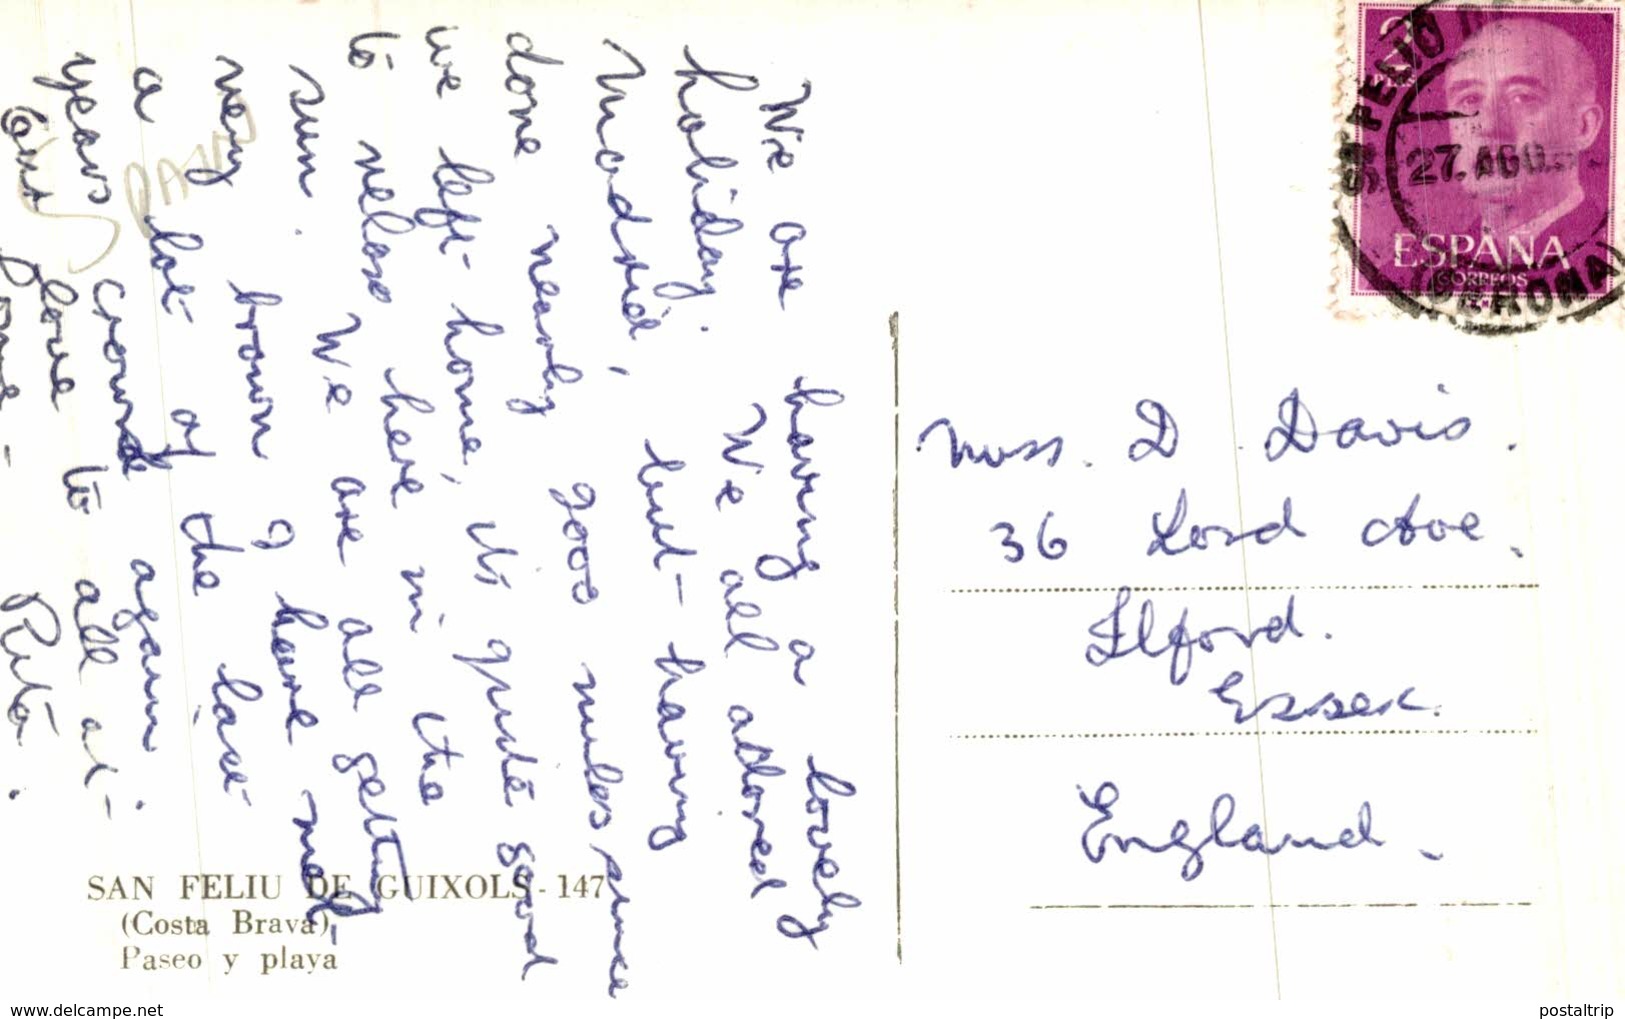 We are having a lovely
holiday. We all adored
Madrid, but having
done nearly 2000 miles since
we left home, its quite good
to relax here in the
sun. We are all getting
very brown I have met
a lot of the last
years crowd again.
love to all at
Rita.
PAID
SAN FELIU DE GUIXOLS - 147
(Costa Brava)
Paseo y playa
Miss. D. Davis.
36 Lord Ave.
Ilford.
Essex.
England.
27. AGO.
ESPAÑA
CORREOS
(GERONA)
www.delcampe.net
postaltrip